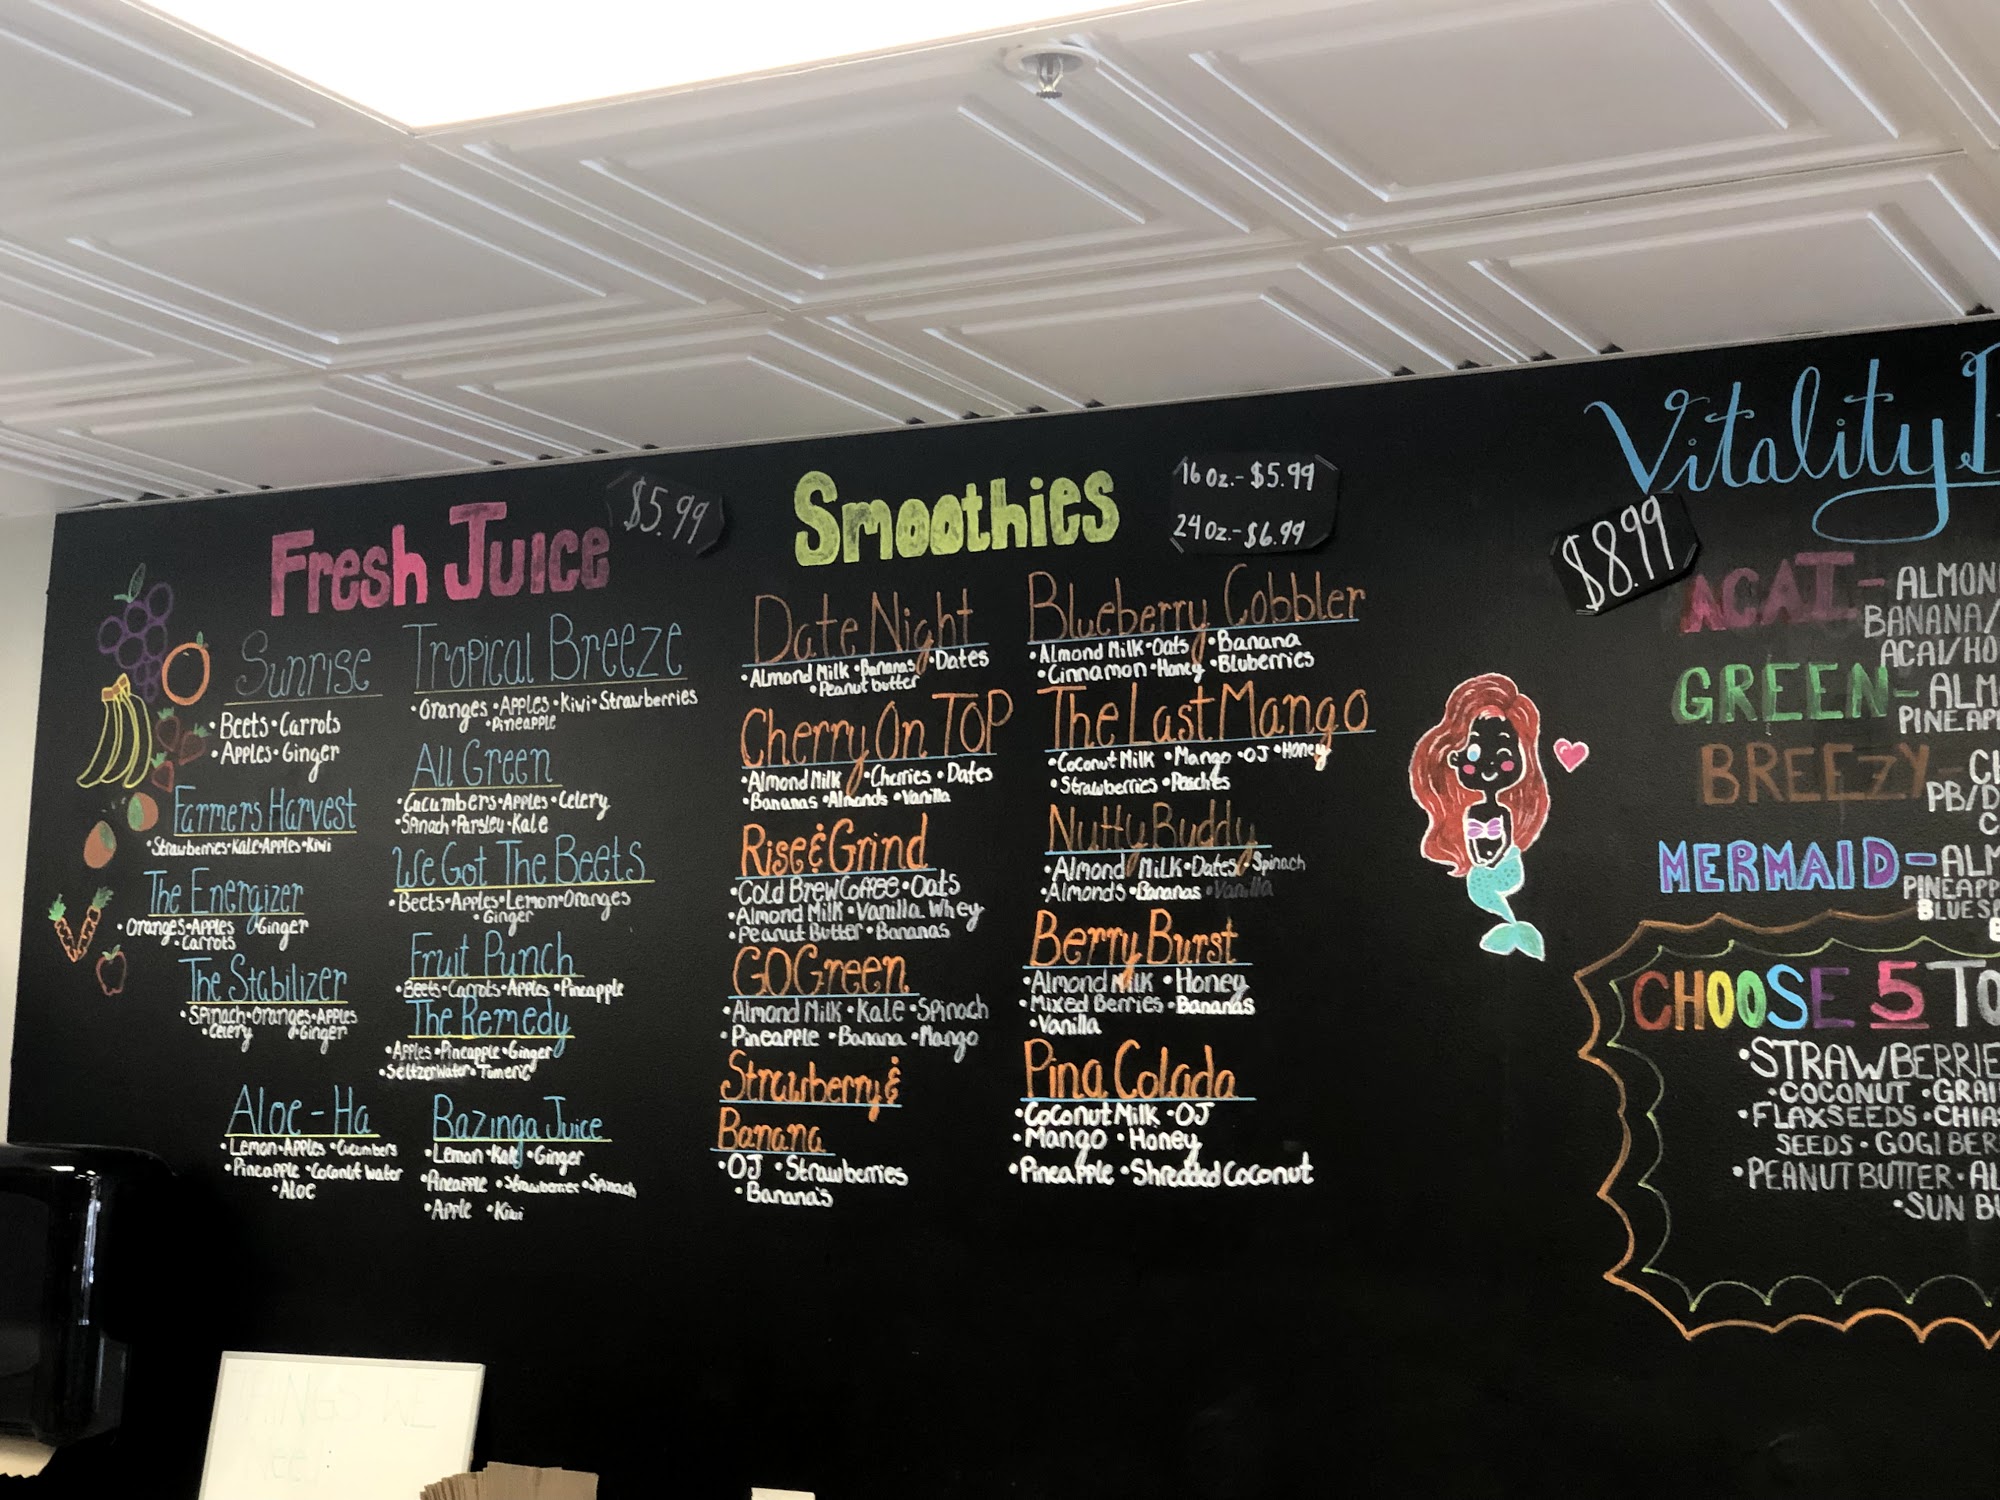 Fresh Juice
$5.99
Sunrise
•Beets•Carrots
•Apples•Ginger
Farmers Harvest
•Strawberries•Kale•Apples•Kiwi
The Energizer
•Oranges•Apples •Ginger
•Carrots
The Stabilizer
•Spinach•Oranges•Apples
•Celery •Ginger
Aloe-Ha
•Lemon•Apples •Cucumbers
•Pineapple •Coconut Water
•Aloe
Tropical Breeze
•Oranges •Apples •Kiwi•Strawberries
•Pineapple
All Green
•Cucumbers•Apples•Celery
•Spinach•Parsley•Kale
We Got The Beets
•Beets•Apples•Lemon•Oranges
•Ginger
Fruit Punch
•Beets•Carrots•Apples •Pineapple
The Remedy
•Apples•Pineapple•Ginger
•Seltzer Water• Tumeric
Bazinga Juice
•Lemon •Kale •Ginger
•Pineapple •Strawberries •Spinach
•Apple •Kiwi
Smoothies
16 oz.-$5.99
24 oz.-$6.99
Date Night
•Almond Milk •Bananas •Dates
•Peanut butter
Cherry On TOP
•Almond Milk •Cherries •Dates
•Bananas •Almonds •Vanilla
Rise & Grind
•Cold Brew Coffee •Oats
•Almond Milk •Vanilla Whey
•Peanut Butter •Bananas
GO Green
•Almond Milk •Kale •Spinach
•Pineapple •Banana •Mango
Strawberry &
Banana
•OJ •Strawberries
•Banana's
Blueberry Cobbler
•Almond Milk•Oats •Banana
•Cinnamon•Honey •Bluberries
The Last Mango
•Coconut Milk •Mango •OJ •Honey
•Strawberries •Peaches
Nutty Buddy
•Almond Milk•Dates•Spinach
•Almonds •Bananas •Vanilla
Berry Burst
•Almond Milk •Honey
•Mixed Berries •Bananas
•Vanilla
Pina Colada
•Coconut Milk •OJ
•Mango •Honey
•Pineapple •Shredded Coconut
Vitality
$8.99
ACAI- ALMON
BANANA/
ACAI/HO
GREEN- ALM
PINEAPP
BREEZY-
PB/D
MERMAID-ALM
PINEAPP
BLUE
CHOOSE 5 TO
•STRAWBERRIE
•COCONUT •GRA
•FLAXSEEDS•CHIA
SEEDS•GOGI BER
•PEANUT BUTTER•AL
•SUN BU
THINGS WE
Need: